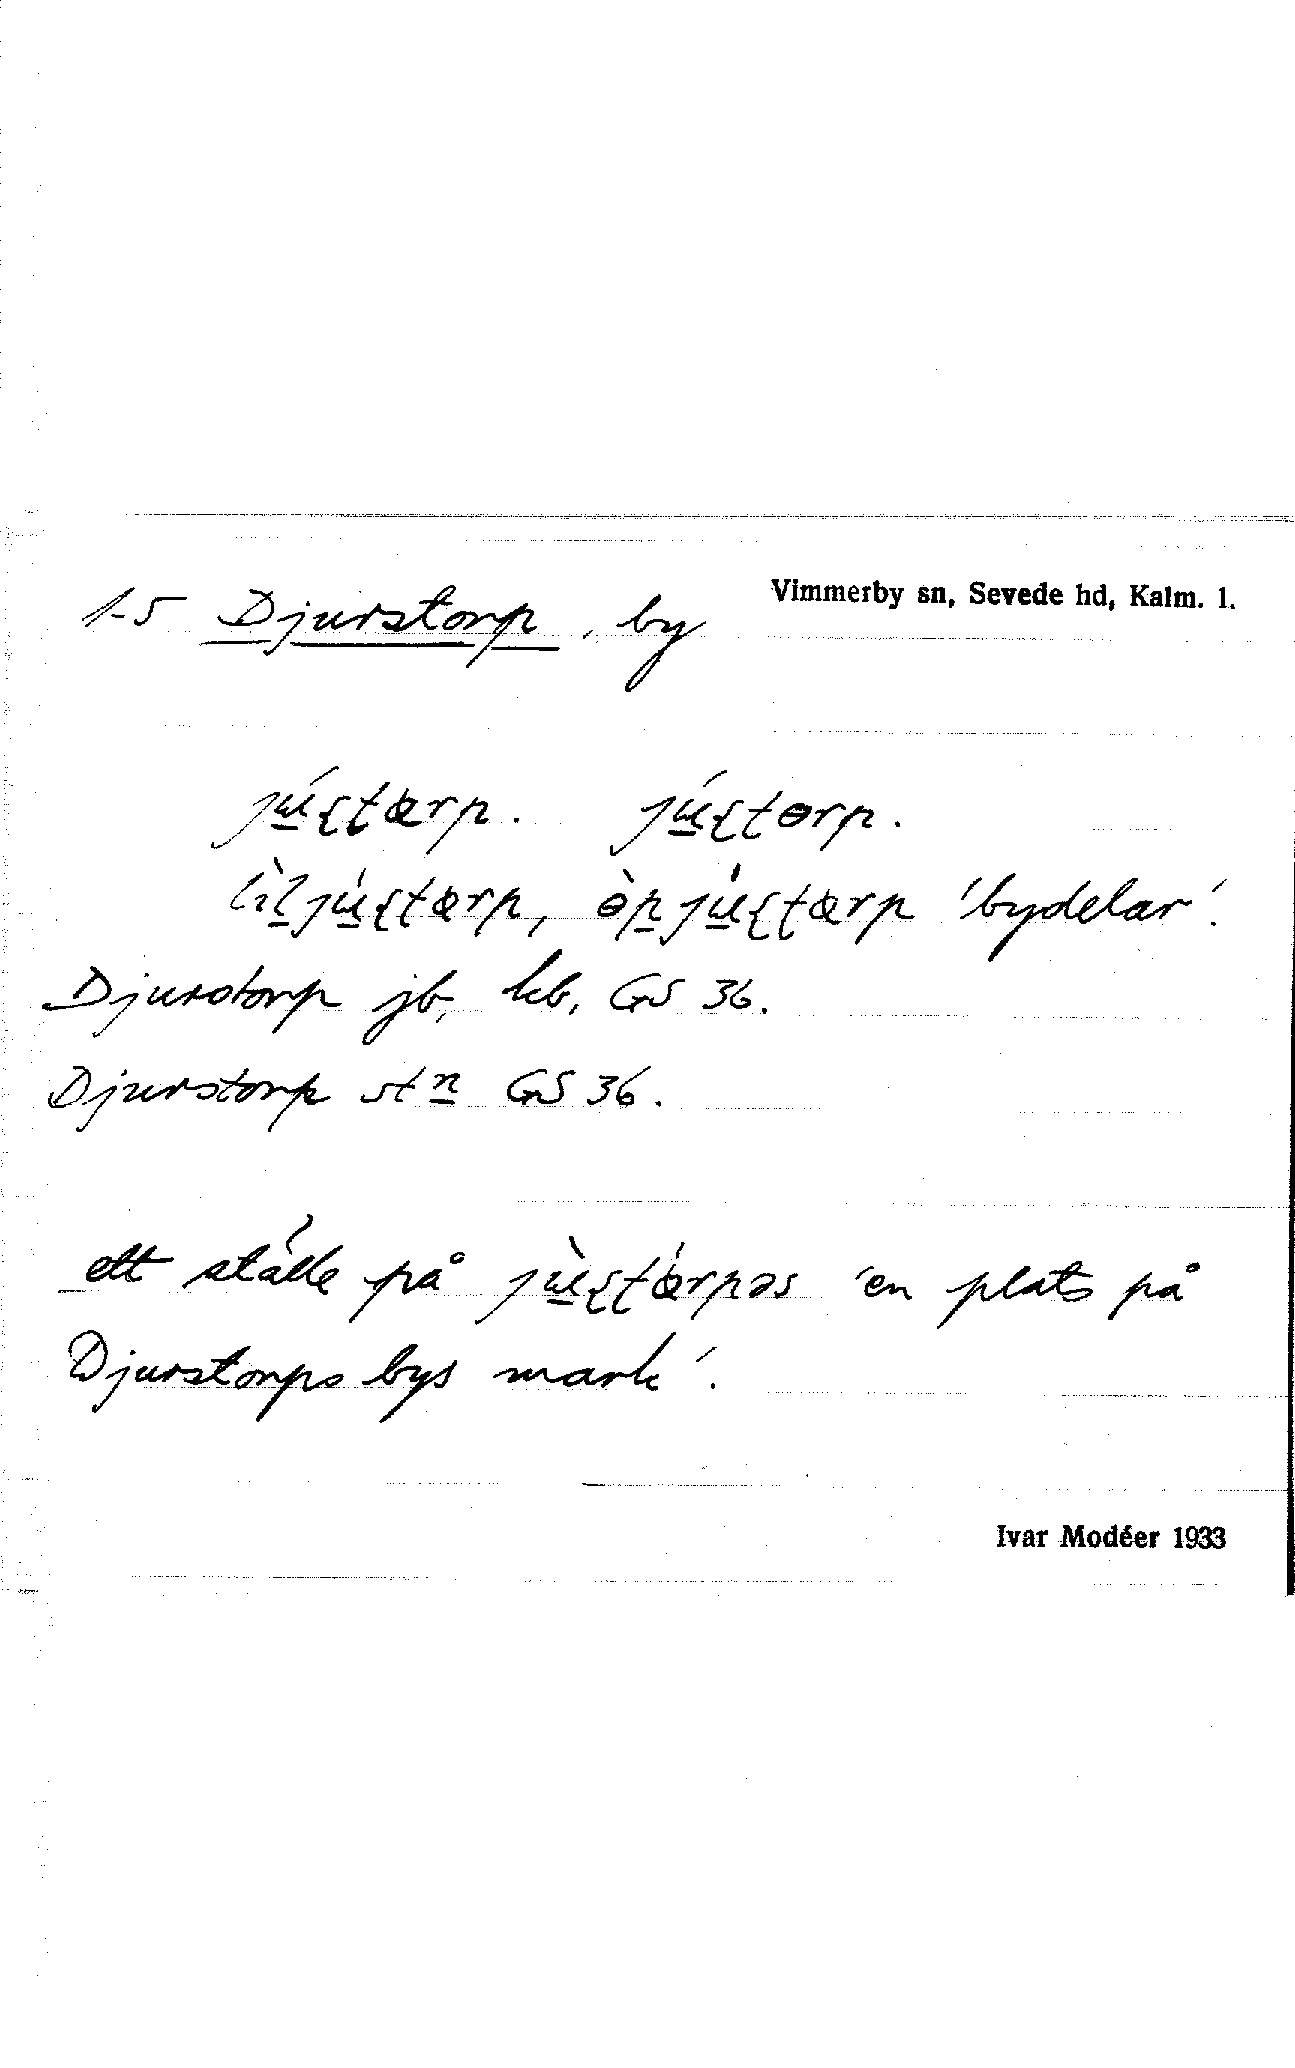 1-5 Djurstorp, by
Vimmerby sn, Sevede hd, Kalm. l.
jɯ́ʂʈærp. jɯ́ʂʈɵrp.
lìljɯ́ʂʈærp, ɵ̀pjɯ́ʂʈærp 'bydelar'.
Djurstorp jb, kb, GS 36.
Djurstorp stn GS 36.
ett ställe på jɯ̀ʂʈǽrpəs 'en plats på
Djurstorps bys mark'.
Ivar Modéer 1933